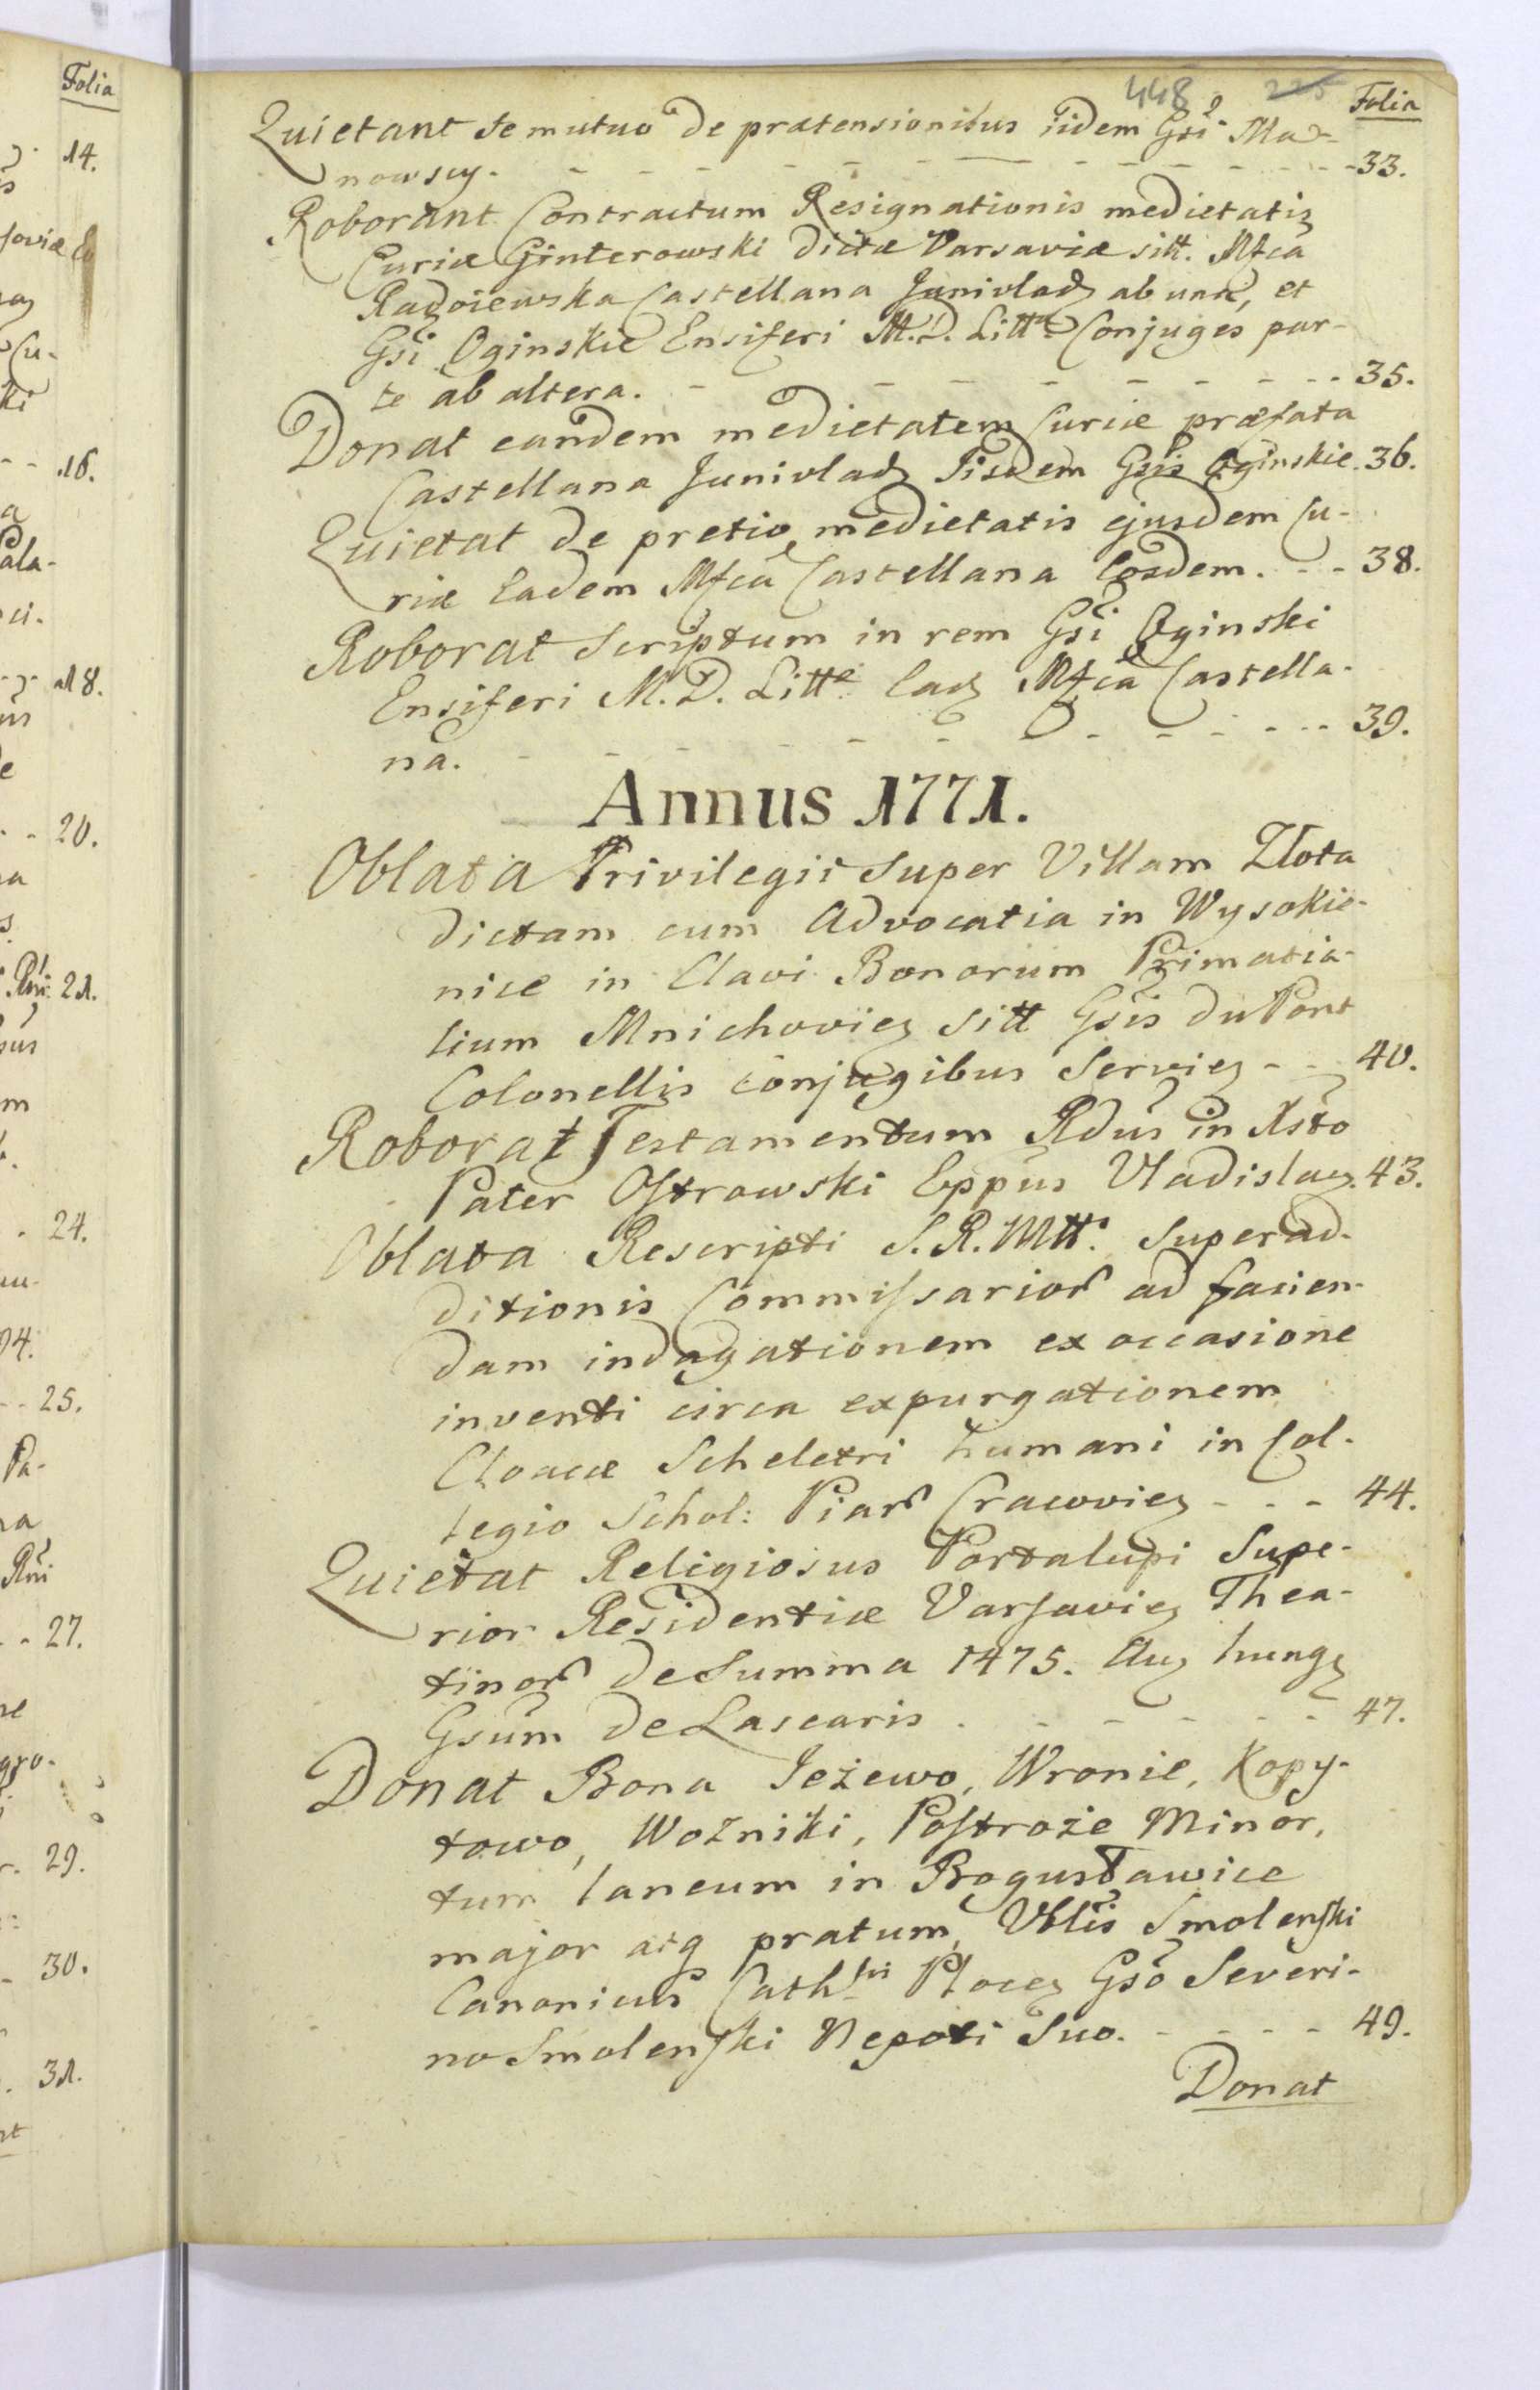 Folia
14.
16.
18.
20.
21.
24.
25.
27.
29.
30.
31.
448 225
Folia
Quietant se mutuo de praetensionibus iidem Gsi Ma-
nowscy. - - - 33.
Roborant Contractum Resignationis medietatis
Curiæ Ginterowski dictæ Varsaviæ sitt. Mfca
Radzoiewska Castellana Junivlad ab una, et
Gsi Oginskie Ensiferi M.D. Littæ Conjuges par-
te ab altera. - - - 35.
Donat eandem medietatem Curiæ præfata
Castellana Junivlad Iisdem Gsis Oginskie. 36.
Quietat de pretio medietatis ejusdem Cu-
riæ Eadem Mfca Castellana Eosdem. - - 38.
Roborat Scriptum in rem Gsi Oginski
Ensiferi M.D. Litte Ead Mfca Castella-
na. - - - 39.
Annus 1771.
Oblata Privilegii super Villam Złota
dictam cum Advocatia in Wysokie-
nice in Clavi Bonorum Primatia-
lium Mnichovien sitt Gsis du Pont
Colonellis conjugibus Servien - - 40.
Roborat Testamentum Rdus in Xsto
Pater Ostrowski Eppus Vladislav. 43.
Oblata Rescripti S.R.Mtt. Superad-
ditionis Commissarior ad facien-
dam indagationem ex occasione
inventi circa expurgationem
Cloacæ Scheletri humani in Col-
legio Schol: Piar Cracovien - - - 44.
Quietat Religiosus Portalupi Supe-
rior Residentiæ Varsavien Thea-
tinor de Summa 1475. Aur hung
Gsum de Lascaris. - - - 47.
Donat Bona Jeżewo, Wronie, Kopy-
towo, Wozniki, Postroże Minor,
tum laneum in Bogusławice
major atq pratum, Vblis Smolenski
Canonicus Cathlis Plocen Gso Severi-
no Smolenski Nepoti Suo. - - - 49.
Donat